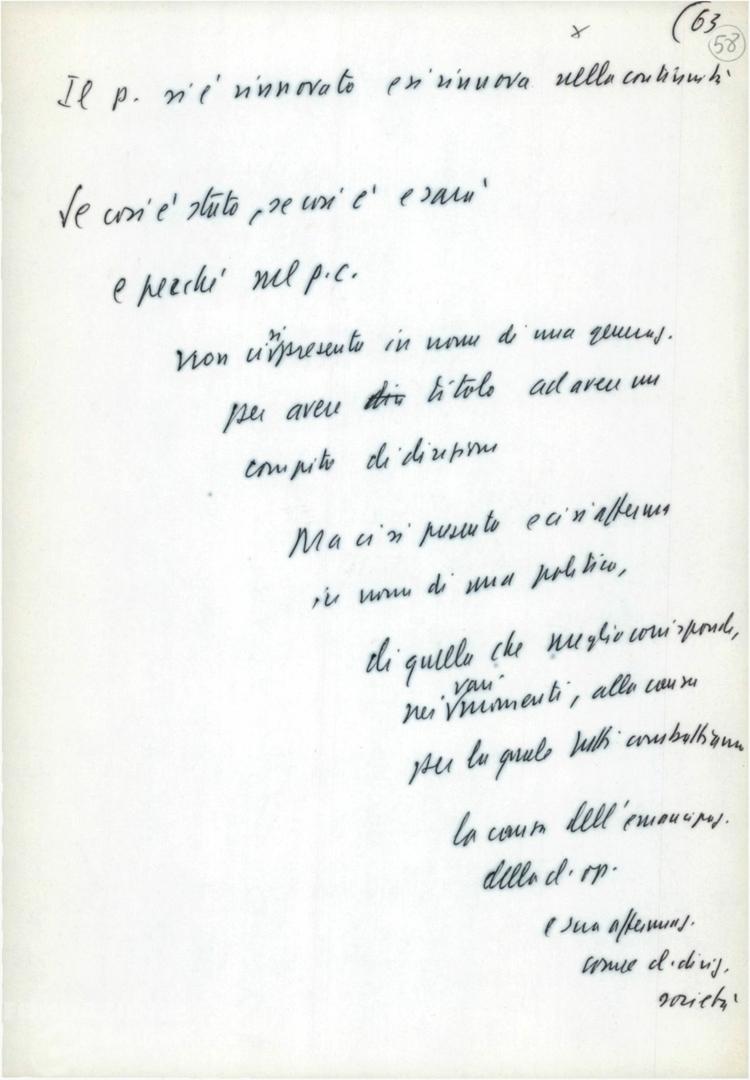 x (63
58
Il p. si è rinnovato e si rinnova nella continuità
Se così è stato, se così è e sarà
e perché nel p.c.
si
Non ci presenta in nome di una generaz.
per avere titolo ad avere un
compito di direzione
Ma ci si presenta e ci si afferma
in nome di una politica,
di quella che meglio corrisponde,
vari
nei momenti, alla causa
per la quale tutti combattiamo
la causa dell'emancipaz.
della cl. op.
e sua affermaz.
come cl. dirig.
società